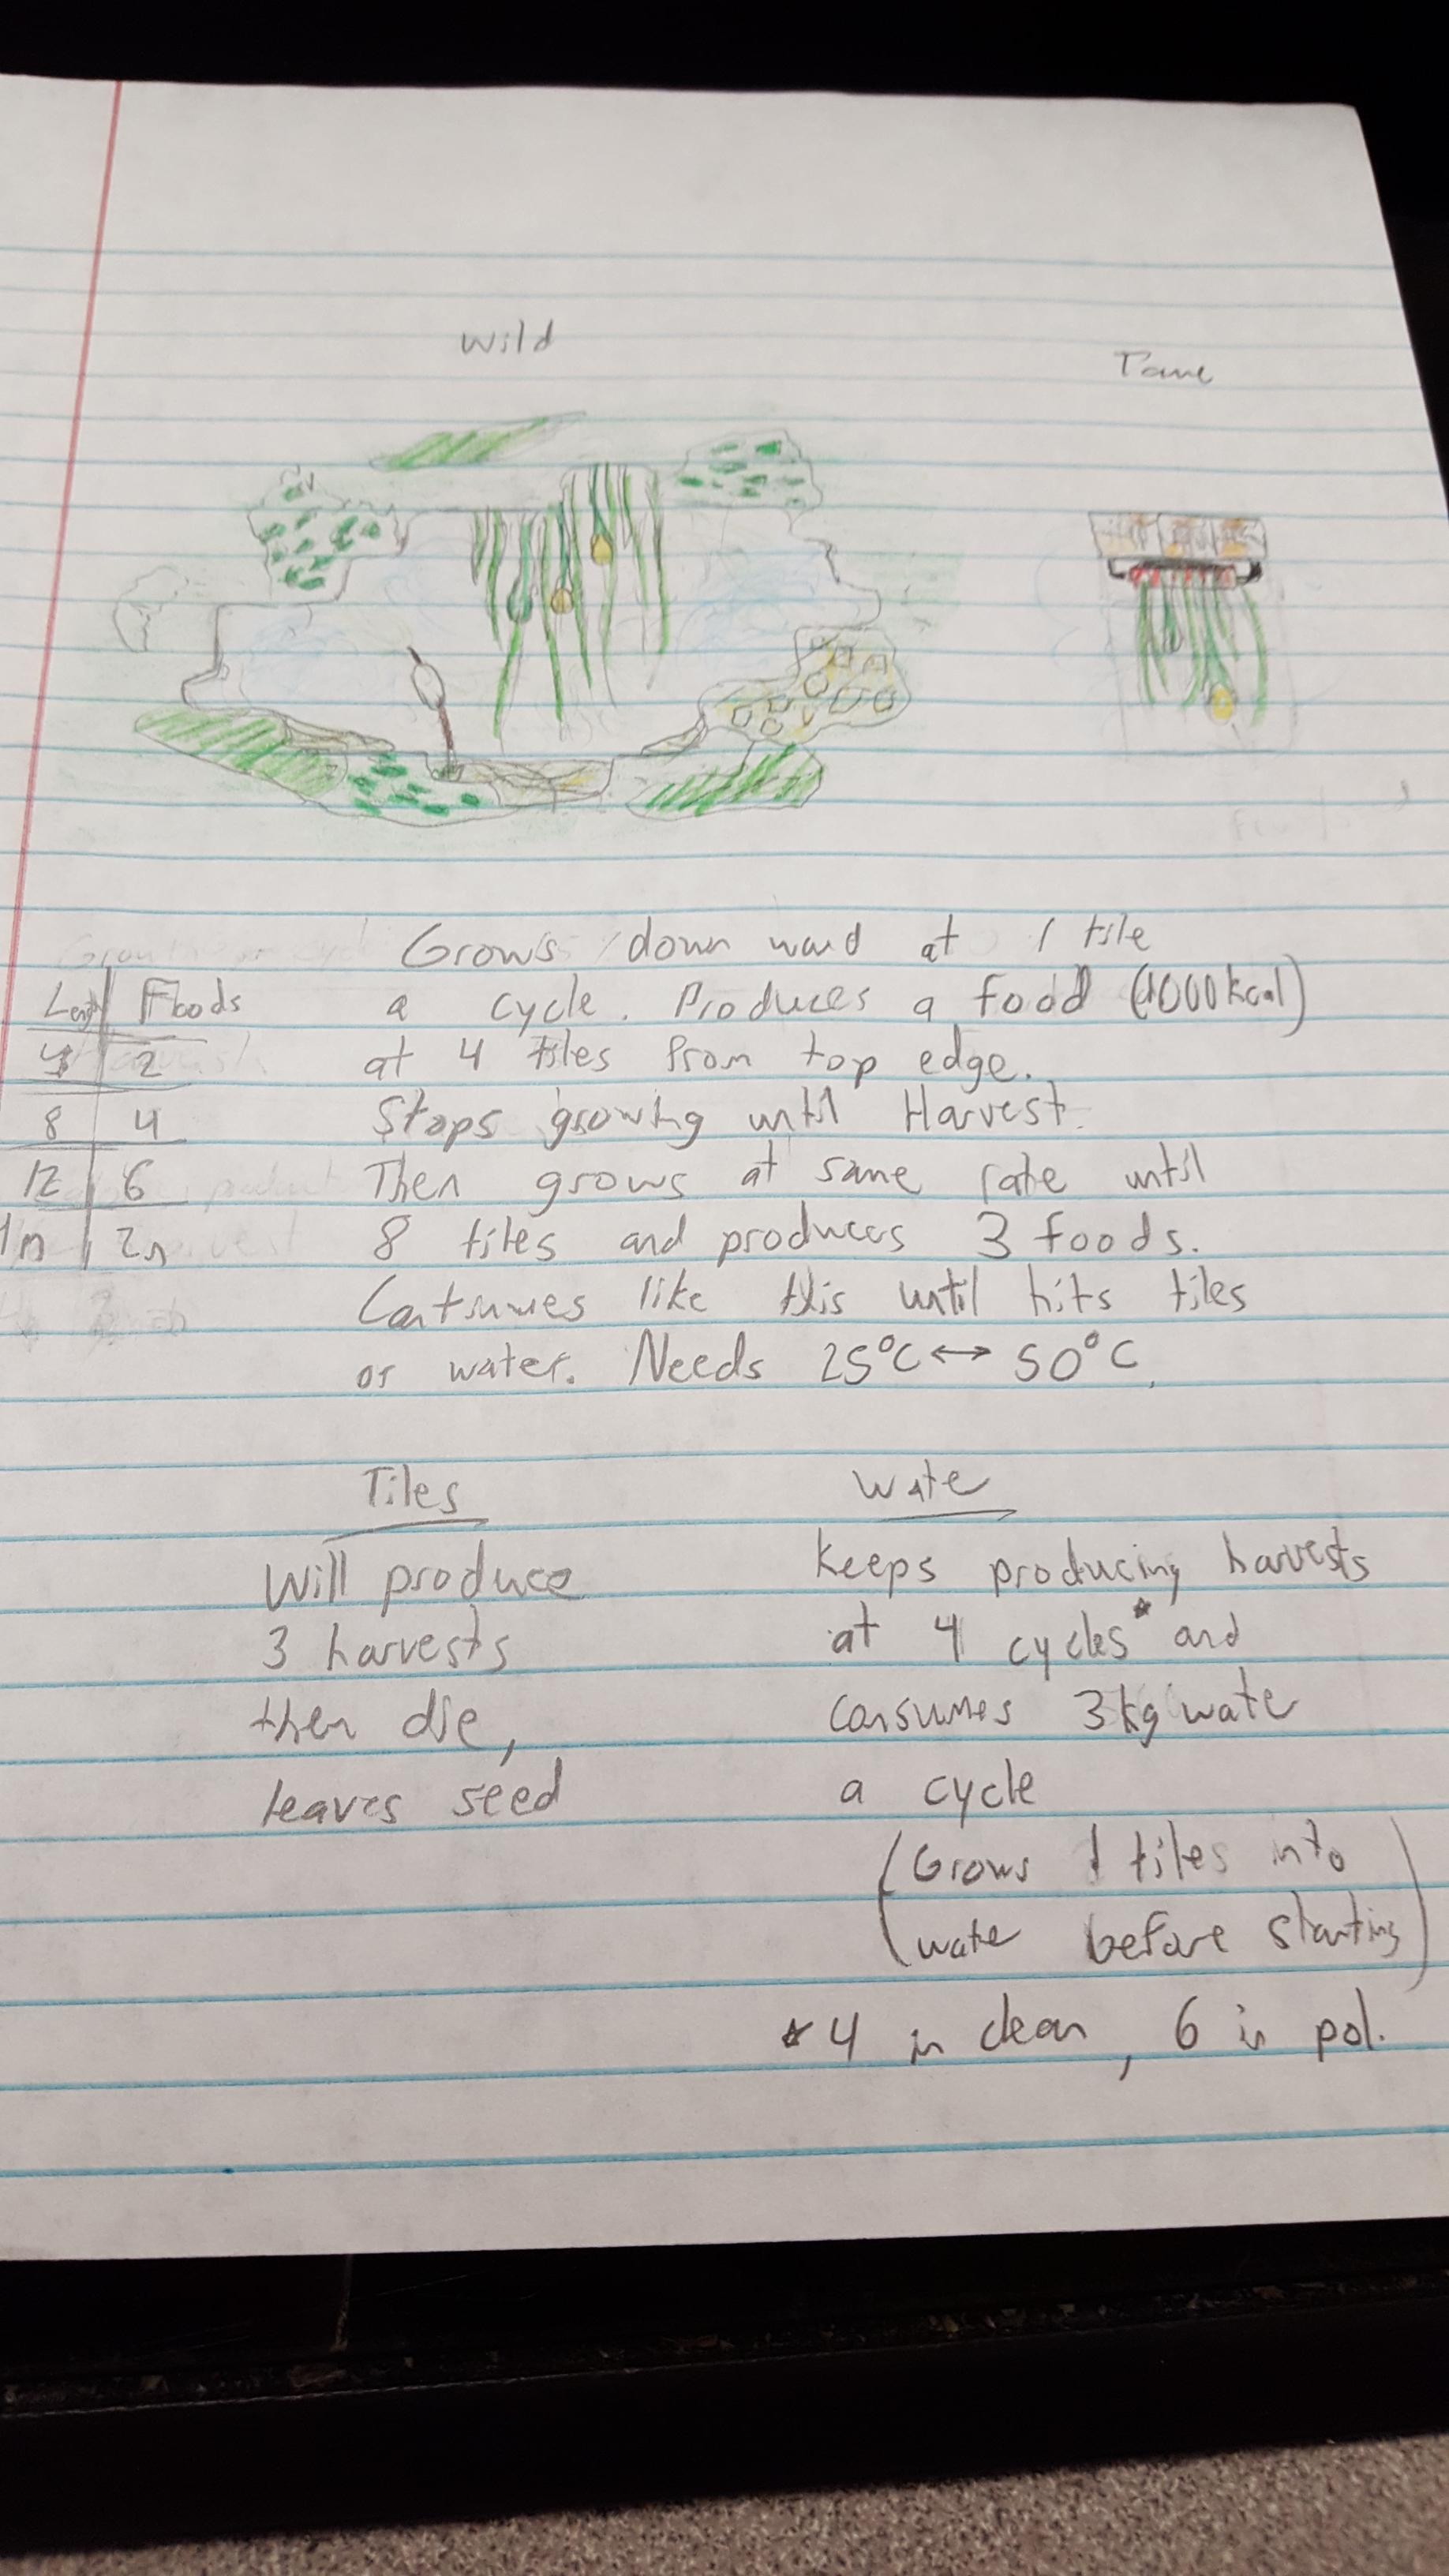 Wild
Tame
Grows downward at 1 tile
a cycle. Produces a food (1000kcal)
at 4 tiles from top edge.
Stops growing until Harvest.
Then grows at same rate until
8 tiles and produces 3 foods.
Continues like this until hits tiles
or water. Needs 25°C ↔ 50°C.
Length | Foods
4 | 2
8 | 4
12 | 6
| 2n
Tiles
Will produce
3 harvests
then die,
leaves seed
Wate
keeps producing harvests
at 4 cycles* and
consumes 3kg wate
a cycle
(Grows 1 tiles into
wate before starting)
*4 in clean, 6 in pol.